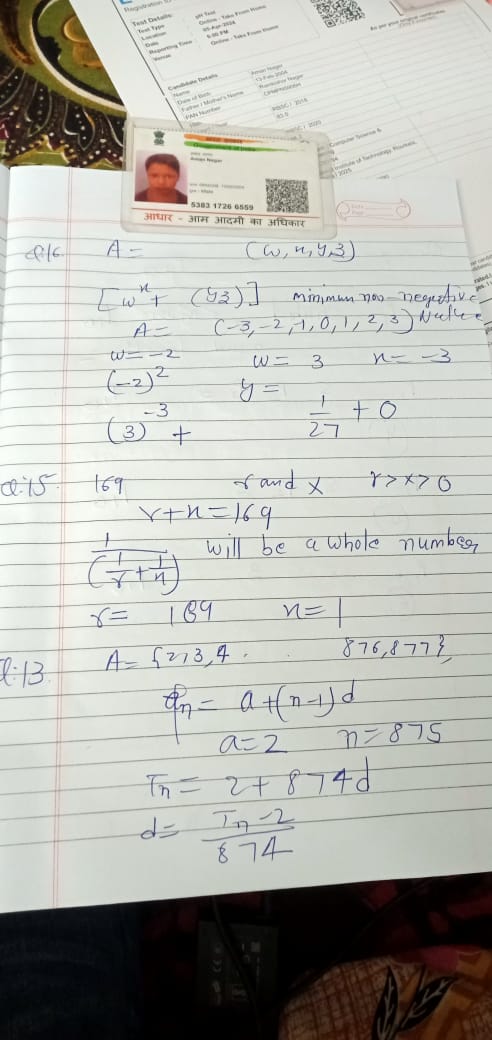 Registration
Test Details:
Test Type
Location
Date
Reporting Time
Venue
Online - Take From Home
05-Apr-2024
6:00 PM
Online - Take From Home
Candidate Details
Name
Date of Birth
Father / Mother's Name
PAN Number
Aman Nagar
Computer Science &
Aman Nagar
5383 1726 6559
आधार - आम आदमी का अधिकार
Q:16 A = (w, x, y, 3)
[w^x + (y3)] minimum non-negative
A = (-3, -2, -1, 0, 1, 2, 3)
w = -2 w = 3 x = -3
(-2)^2 y =
(3)^-3 + 1/27 + 0
Q:15 169 r and x r > x > 0
r + x = 169
1/(1/r + 1/x) will be a whole number
r = 189 x = 1
Q:13 A = {2, 3, 4 . 876, 877},
a_n = a + (n-1)d
a = 2 n = 875
Tn = 2 + 874d
d = Tn - 2 / 874